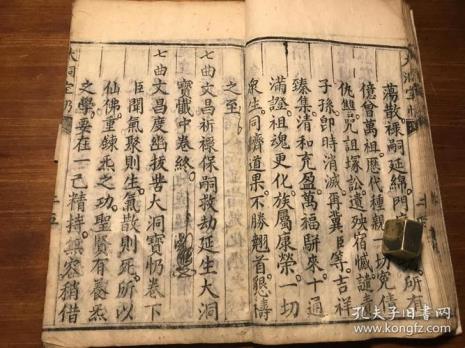 蕩散祿嗣延綿門
億曾萬祖歷代種親一切冤債
仇讐咒詛塚訟遺殃有懺譴
子孫卽時消滅再冀臣等吉祥
臻集清和充盈萬福駢來十通
滿證祖魂更化族屬康榮一切
衆生同儕道果不勝翹首懇禱
之至
七曲文昌祈祿保嗣救劫延生大洞
寶懺中卷終
七曲文昌度幽拔苦大洞寶懺卷下
臣聞氣聚則生氣散則死所以
仙佛重鍊死之功聖賢有養炁
之學要在一己精持無容稍借
大洞
孔夫子旧书网
www.kongfz.com